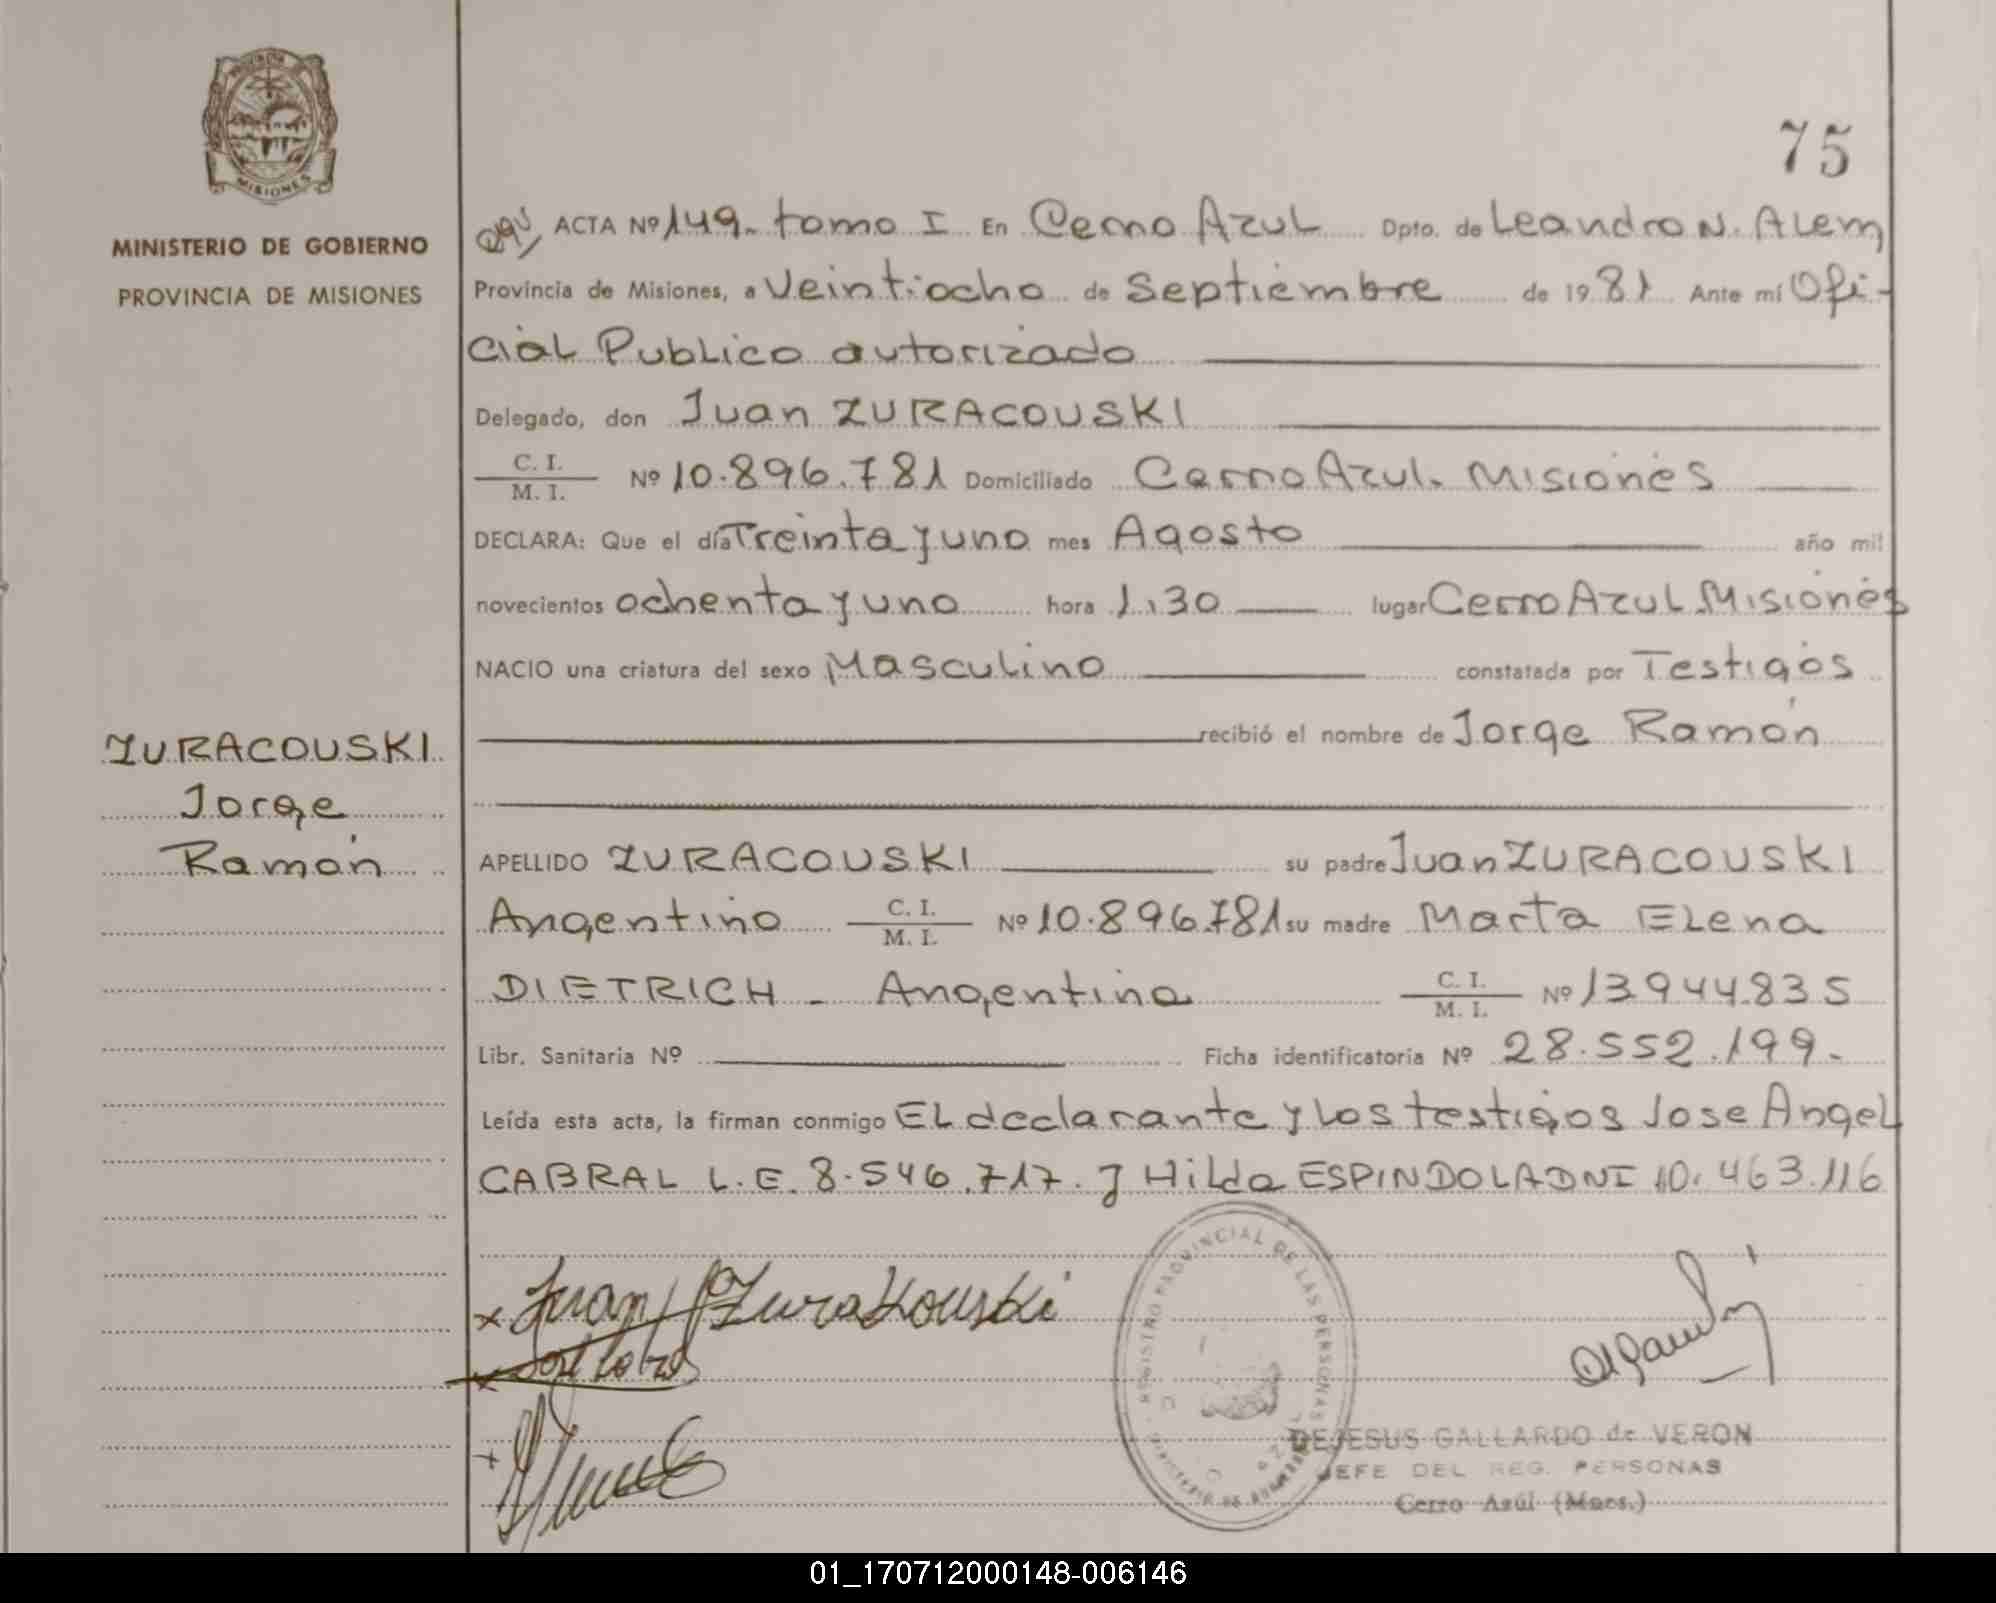 PROVINCIA DE
MISIONES
MINISTERIO DE GOBIERNO
PROVINCIA DE MISIONES
75
ACTA Nº 149. tomo I En Cerro Azul Dpto. de Leandro N. Alem
Provincia de Misiones, a Veintiocho de Septiembre de 1981 Ante mí Ofi-
cial Publico autorizado
Delegado, don Juan ZURACOUSKI
C. I.
M. I. Nº 10.896.781 Domiciliado Cerro Azul. Misiones
DECLARA: Que el día Treinta y uno mes Agosto año mil
novecientos ochenta y uno hora 1,30 lugar Cerro Azul Misiones
NACIO una criatura del sexo Masculino constatada por Testigos
recibió el nombre de Jorge Ramón
ZURACOUSKI
Jorge
Ramón
APELLIDO ZURACOUSKI su padre Juan ZURACOUSKI
Argentino C. I. M. I. Nº 10.896.781 su madre Marta Elena
DIETRICH - Argentina C. I. M. I. Nº 13944835
Libr. Sanitaria Nº Ficha identificatoria Nº 28.552.199.
Leída esta acta, la firman conmigo El declarante y los testigos Jose Angel
CABRAL L.E. 8.546.717. y Hilda ESPINDOLA DNI 10.463.116
x Juan Zurakouski
REGISTRO PROVINCIAL DE LAS PERSONAS
DEJESUS GALLARDO de VERON
JEFE DEL REG. PERSONAS
Cerro Azúl (Mnes.)
01_170712000148-006146